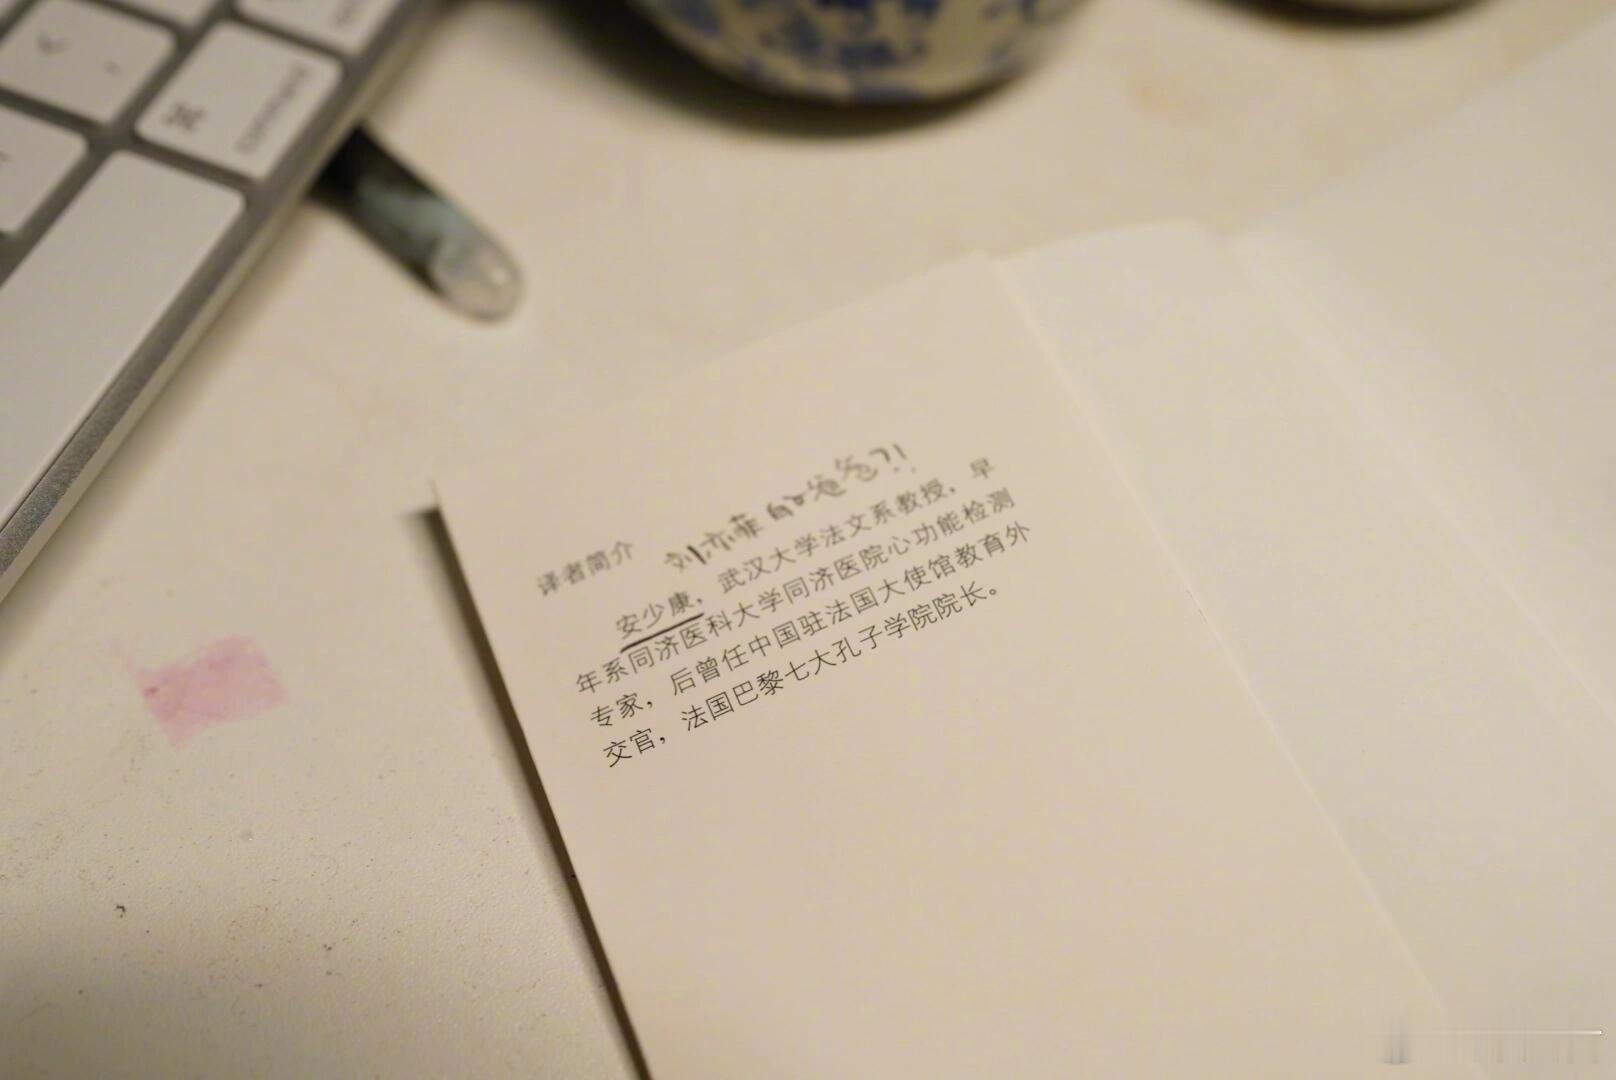 译者简介
刘亦菲的爸爸?!
安少康，武汉大学法文系教授，早
年系同济医科大学同济医院心功能检测
专家，后曾任中国驻法国大使馆教育外
交官，法国巴黎七大孔子学院院长。
⌘